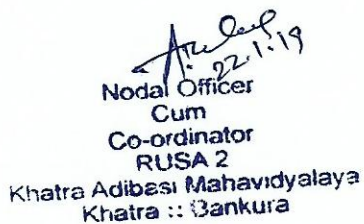 22.1.19
Nodal Officer
Cum
Co-ordinator
RUSA 2
Khatra Adibasi Mahavidyalaya
Khatra :: Bankura